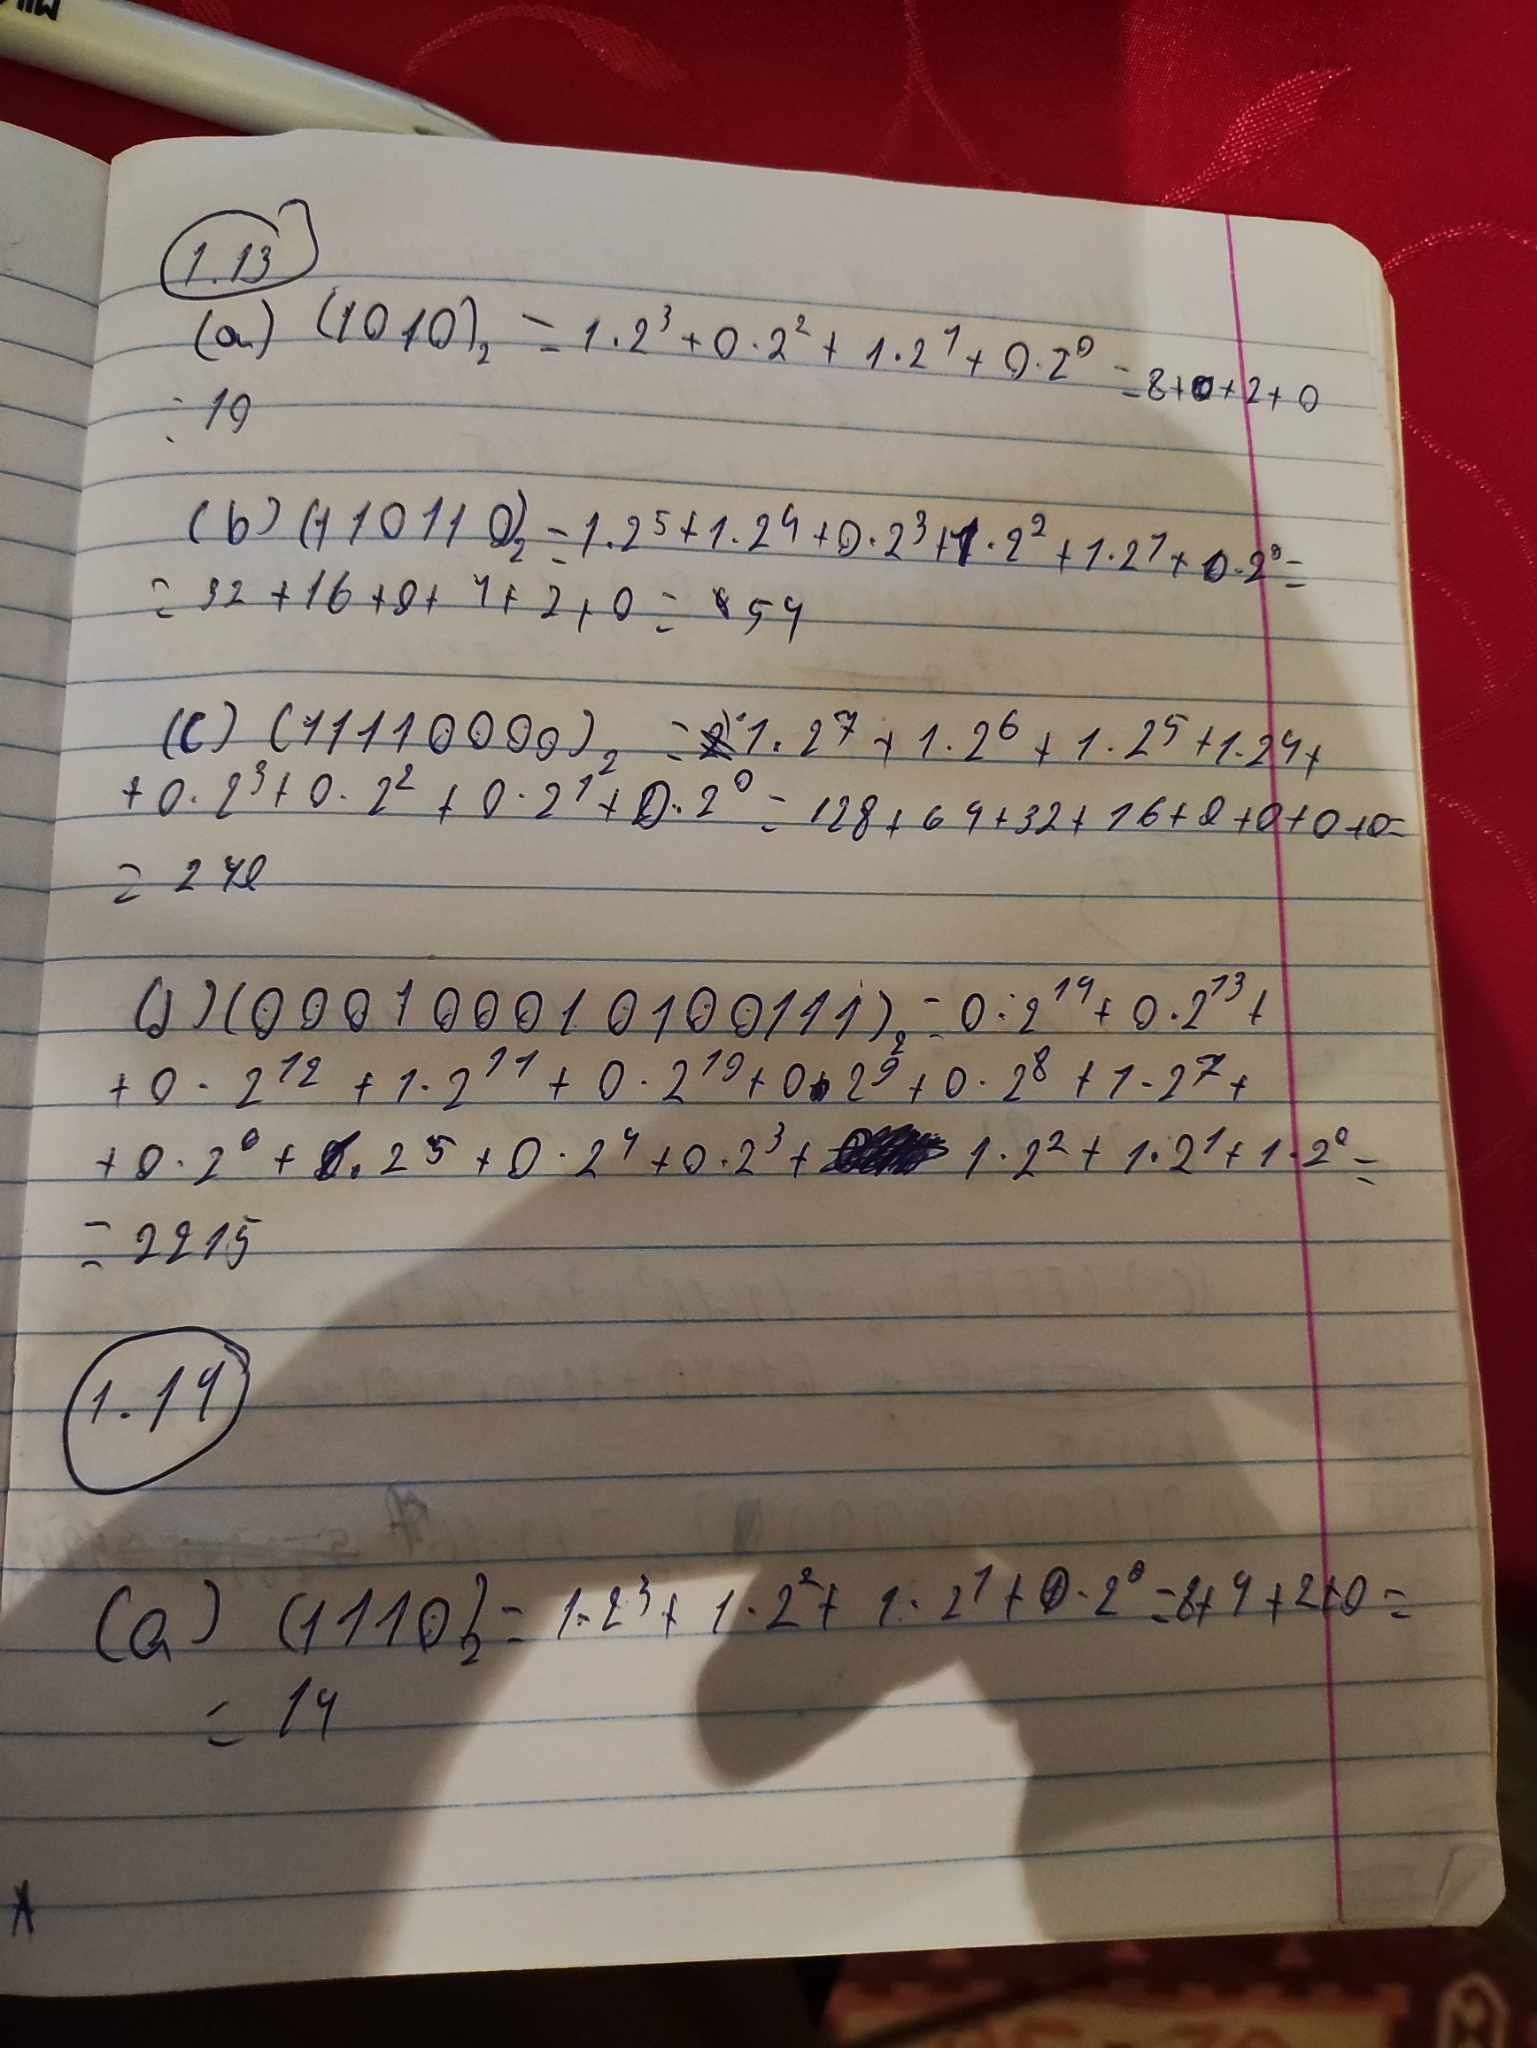 1.13
(a) (1010)₂ = 1·2³+0·2²+1·2¹+0·2⁰ = 8+0+2+0
= 10
(b) (110110)₂ = 1·2⁵+1·2⁴+0·2³+1·2²+1·2¹+0·2⁰=
= 32+16+0+4+2+0 = 54
(c) (11110000)₂ = 1·2⁷+1·2⁶+1·2⁵+1·2⁴+
+0·2³+0·2²+0·2¹+0·2⁰ = 128+64+32+16+0+0+0+0=
= 240
(d) (000100010100111)₂ = 0·2¹⁴+0·2¹³+
+0·2¹²+1·2¹¹+0·2¹⁰+0·2⁹+0·2⁸+1·2⁷+
+0·2⁶+1·2⁵+0·2⁴+0·2³+ 1·2²+1·2¹+1·2⁰=
= 2215
1.14
(a) (1110)₂ = 1·2³+1·2²+1·2¹+0·2⁰=8+4+2+0=
= 14